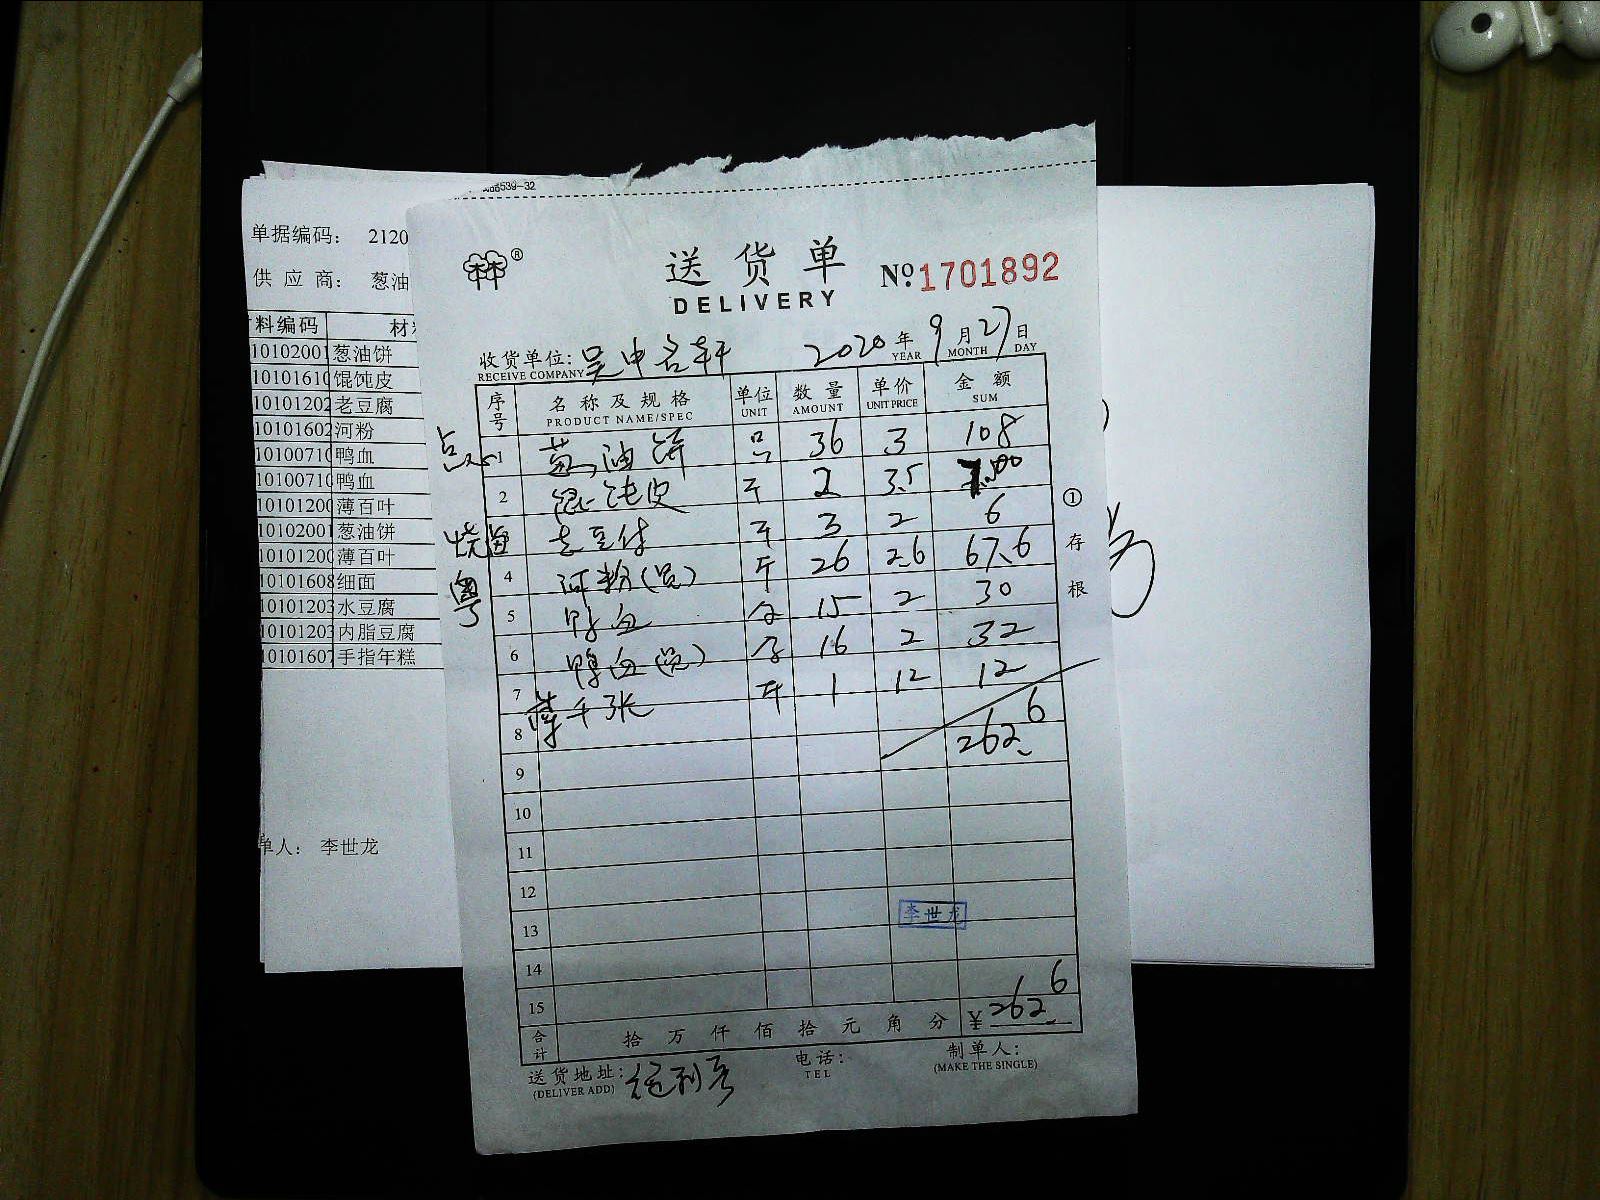 539-32
单据编码： 2120
供 应 商： 葱油
料编码 材
10102001 葱油饼
1010161 馄饨皮
10101202 老豆腐
10101602 河粉
1010071 鸭血
1010071 鸭血
1010120 薄百叶
10102001 葱油饼
1010120 薄百叶
10101608 细面
10101203 水豆腐
10101203 内脂豆腐
10101607 手指年糕
单人： 李世龙
®
送 货 单 Nº 1701892
DELIVERY
收货单位: 吴中名轩 2020 年 9 月 27 日
RECEIVE COMPANY YEAR MONTH DAY
序号 名 称 及 规 格 单位 数 量 单价 金 额
PRODUCT NAME/SPEC UNIT AMOUNT UNIT PRICE SUM
点心 1 葱油饼 只 36 3 108
2 馄饨皮 斤 2 3.5 7.00
烧 老豆付 斤 3 2 6
4 河粉 斤 26 2.6 67.6
粤 5 鸭血 15 2 30
6 鸭血 16 2 32
7 薄千张 斤 1 12 12
8 262.6
9
10
11
12
13 李世龙
14
15
合计 拾 万 仟 佰 拾 元 角 分 ¥ 262.6
送货地址: 电话: 制单人:
(DELIVER ADD) TEL (MAKE THE SINGLE)
① 存 根